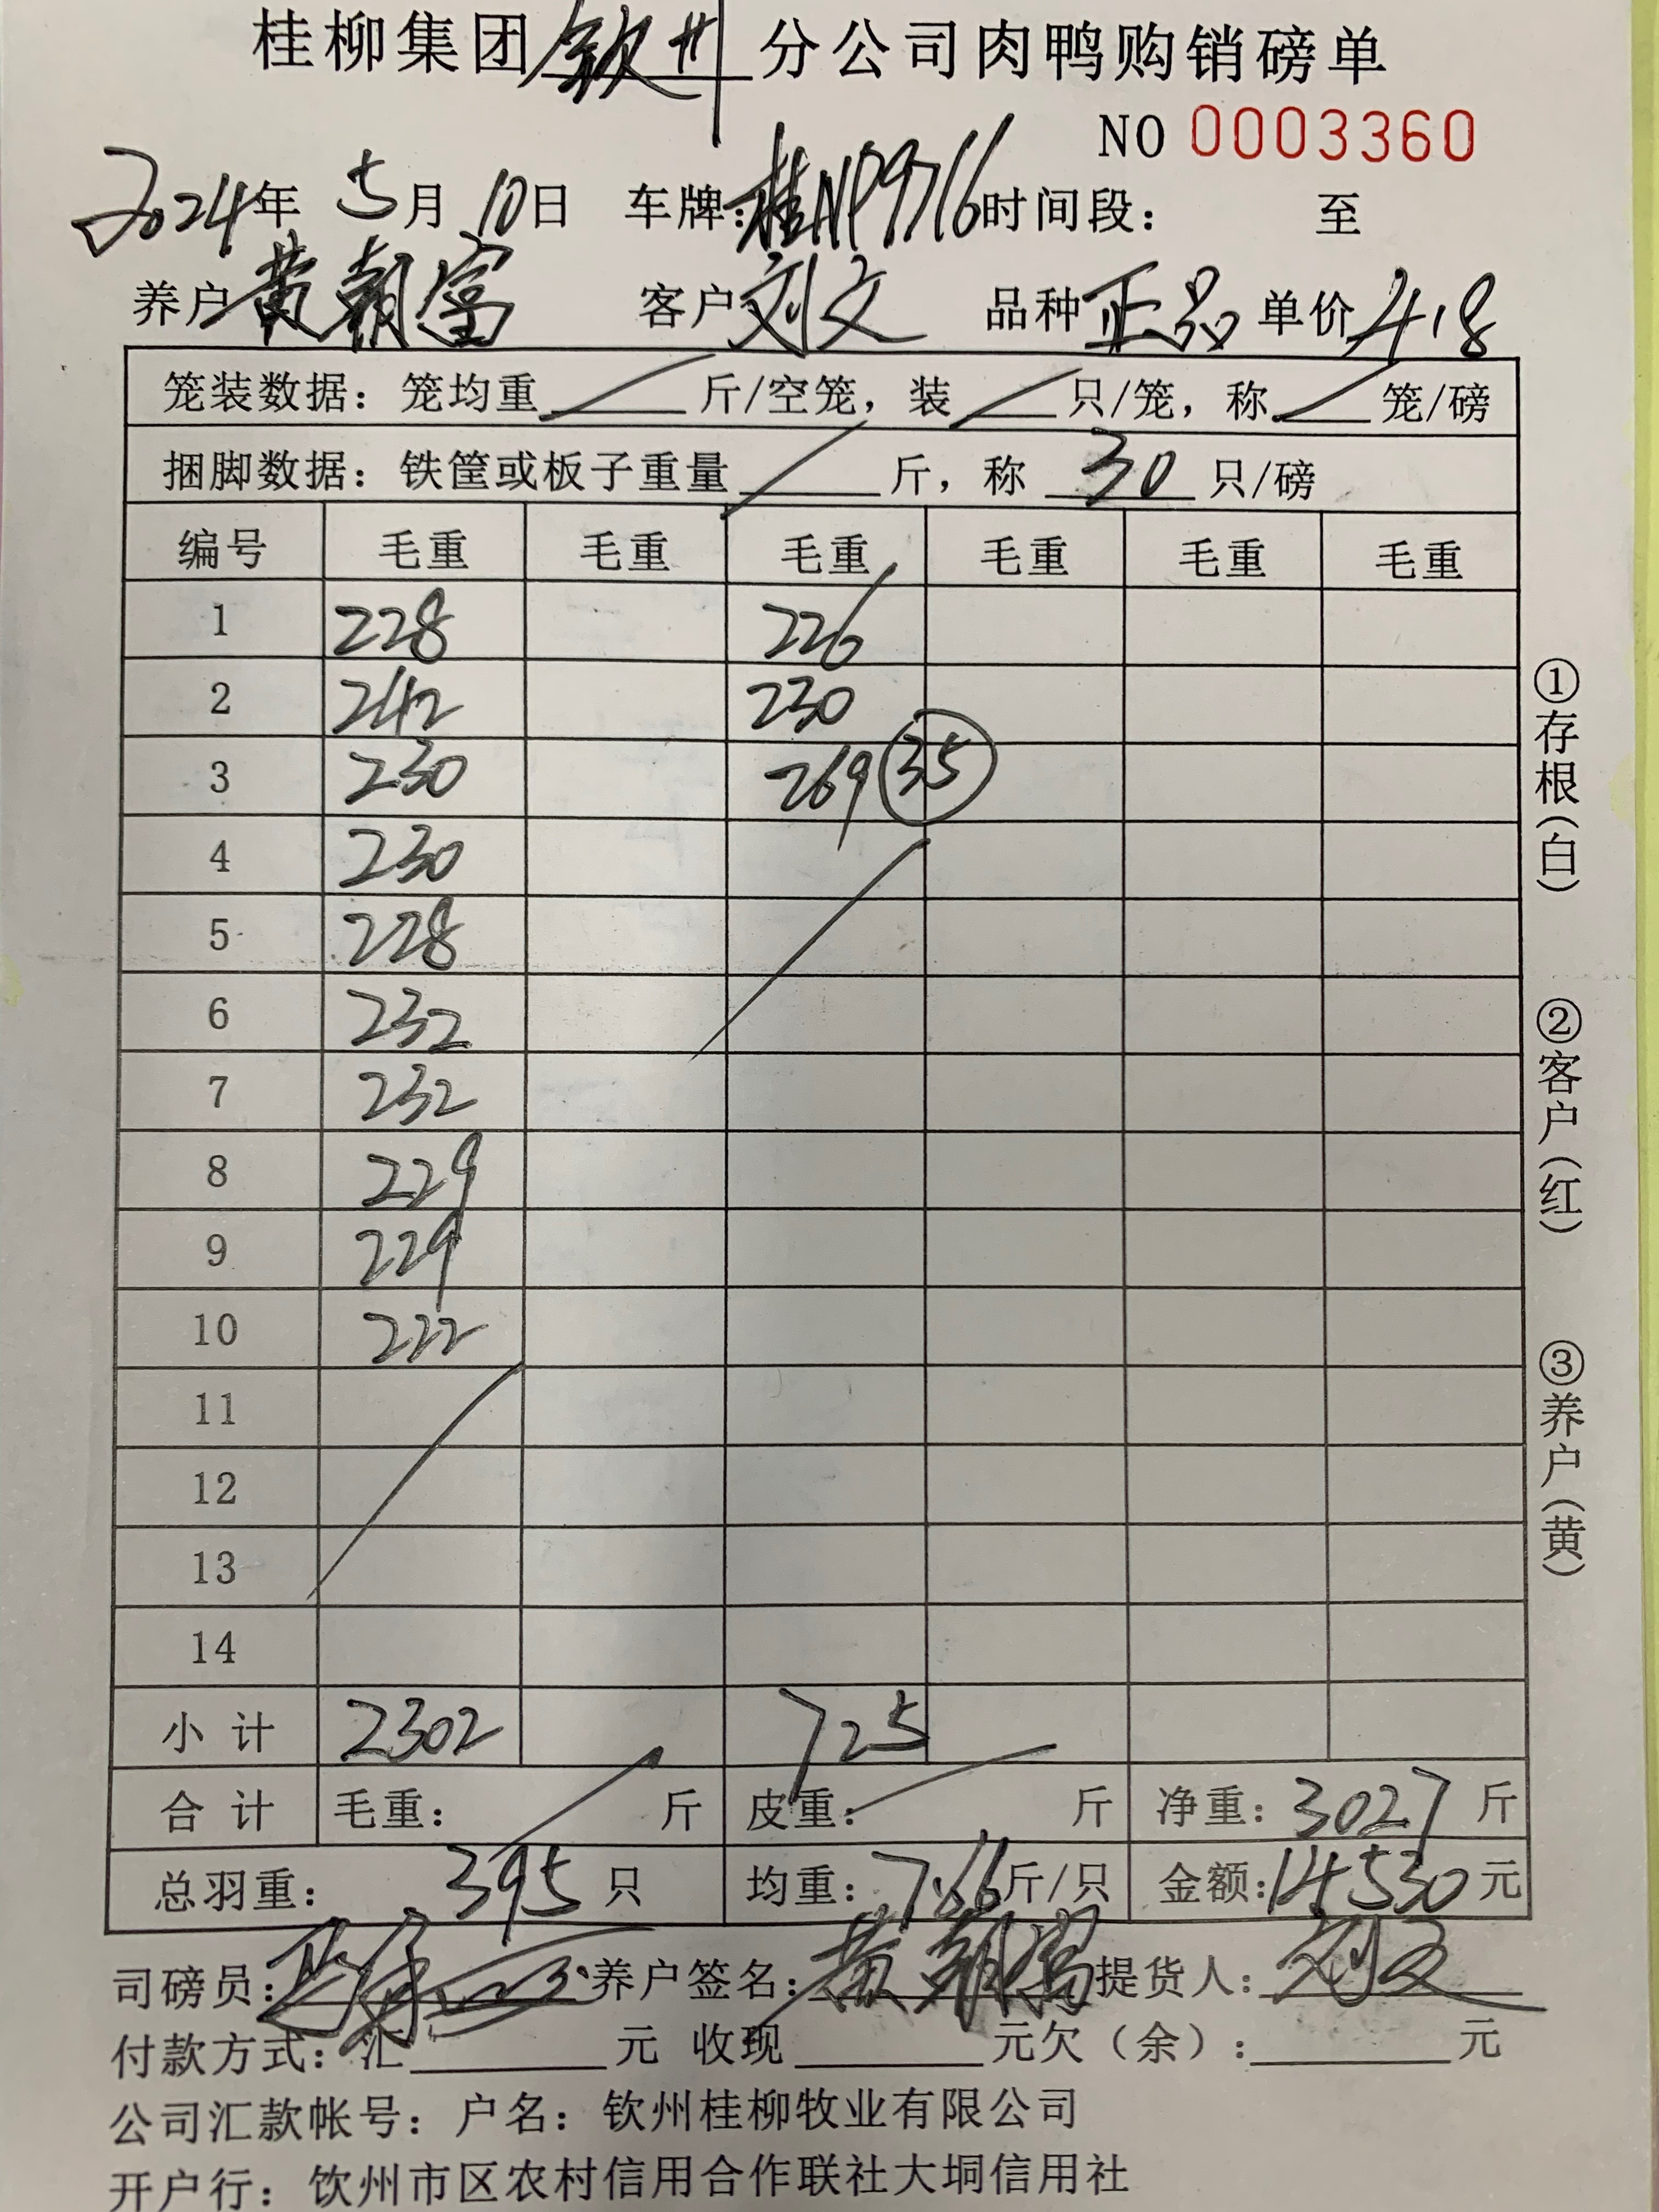 桂柳集团钦州分公司肉鸭购销磅单
NO 0003360
2024年 5月 10日 车牌:桂NP9716时间段: 至
养户黄朝富 客户刘文 品种正品 单价4.8
笼装数据:笼均重 斤/空笼,装 只/笼,称 笼/磅
捆脚数据:铁筐或板子重量 斤,称 30 只/磅
编号 毛重 毛重 毛重 毛重 毛重 毛重
1 228 226
2 242 230
3 230 269 35
4 230
5 228
6 232
7 232
8 229
9 229
10 222
11
12
13
14
小计 2302 725
合计 毛重: 斤 皮重: 斤 净重:3027斤
总羽重: 395只 均重:7.66斤/只 金额:14530元
司磅员: 养户签名:黄朝富 提货人:刘文
付款方式:汇 元 收现 元欠(余): 元
公司汇款帐号:户名:钦州桂柳牧业有限公司
开户行:钦州市区农村信用合作联社大垌信用社
①存根(白) ②客户(红) ③养户(黄)